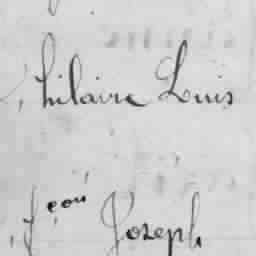 hilaire Louis
Jean Joseph